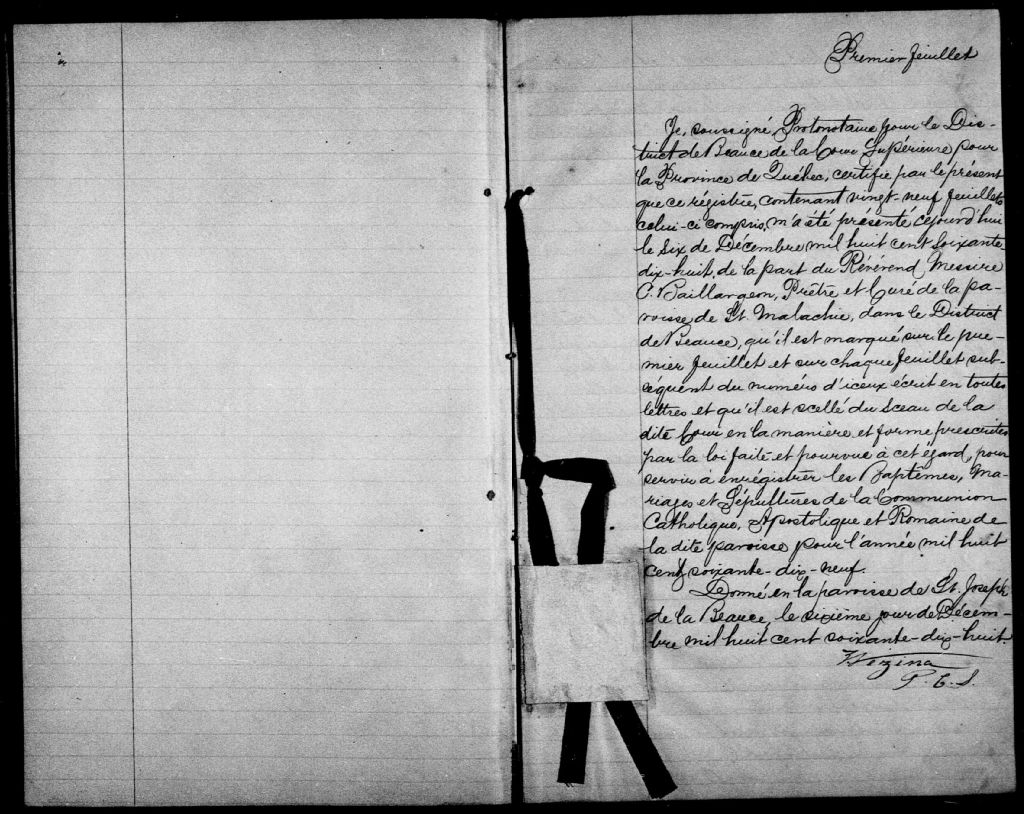 Premier feuillet
Je, soussigné Protonotaire pour le Dis-
trict de Beauce de la Cour Supérieure pour
la Province de Québec, certifie par le présent
que ce régistre, contenant vingt-neuf feuillets
celui-ci compris, m'a été présenté cejourd'hui
le Six de Décembre mil huit cent soixante-
dix-huit, de la part du Révérend Messire
C. Baillargeon, Prêtre et Curé de la pa-
roisse de St. Malachie, dans le District
de Beauce, qu'il est marqué sur le pre-
mier feuillet et sur chaque feuillet sub-
séquent du numéro d'iceux écrit en toutes
lettres et qu'il est scellé du Sceau de la
dite Cour en la manière et forme prescrites
par la loi faite et pourvue à cet égard, pour
servir à enrégistrer les Baptêmes, Ma-
riages et Sépultures de la Communion
Catholique, Apostolique et Romaine de
la dite paroisse pour l'année mil huit
cent soixante-dix-neuf.
Donné en la paroisse de St. Joseph
de la Beauce, le sixième jour de Décem-
bre mil huit cent soixante-dix-huit.
Vézina
P. C. S.